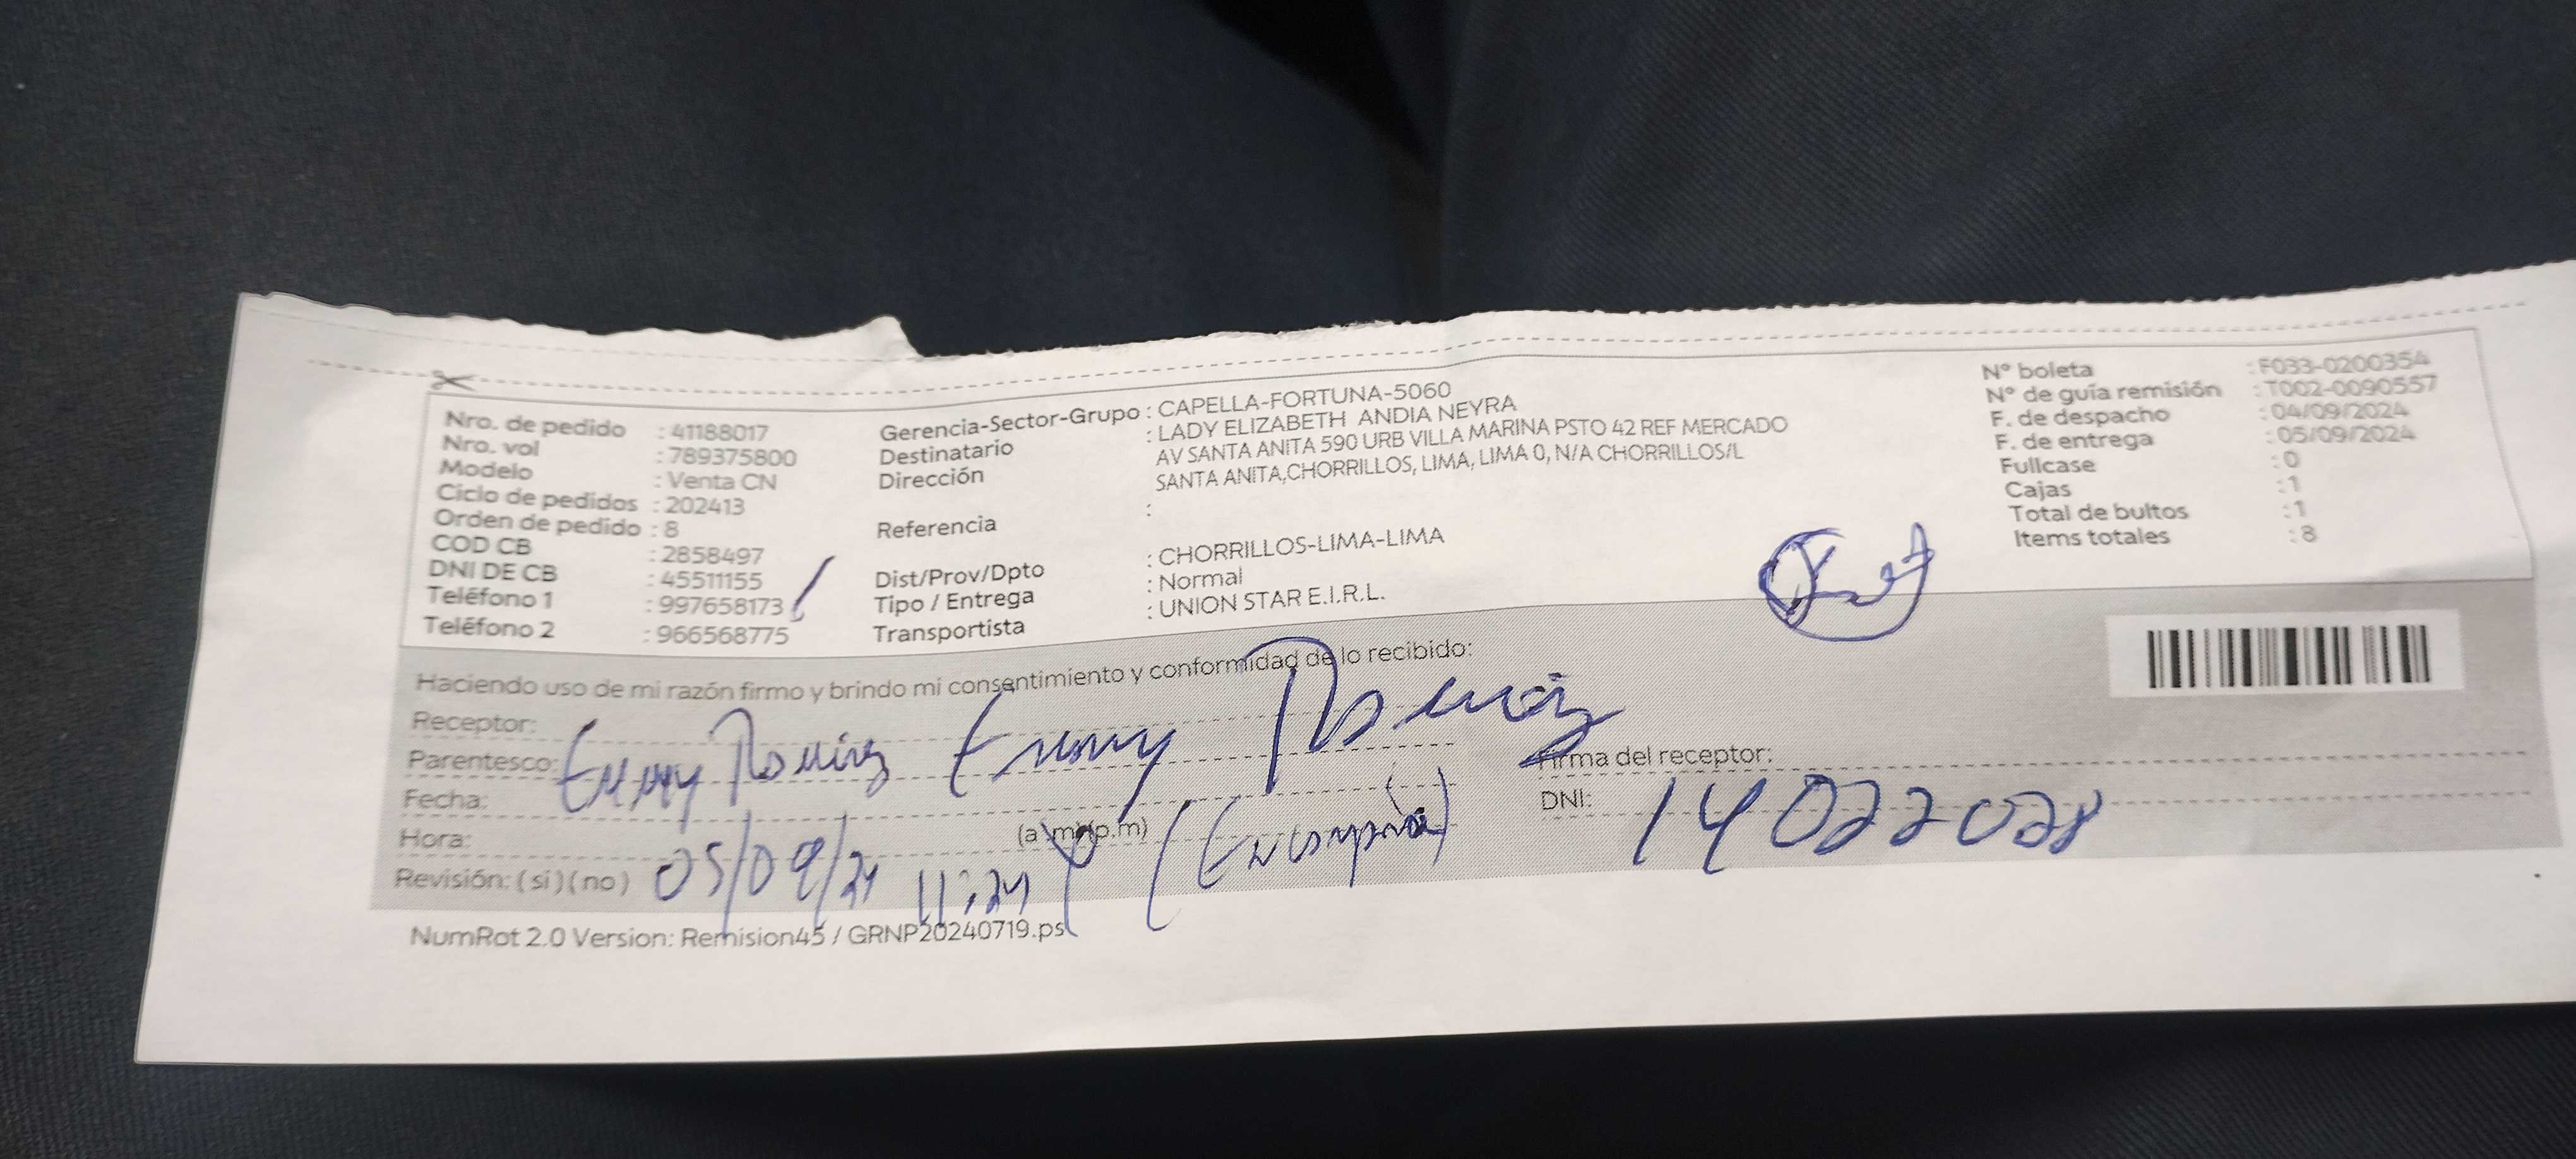 Nro. de pedido : 41188017
Nro. vol : 789375800
Modelo : Venta CN
Ciclo de pedidos : 202413
Orden de pedido : 8
COD CB : 2858497
DNI DE CB : 45511155
Teléfono 1 : 997658173
Teléfono 2 : 966568775
Gerencia-Sector-Grupo : CAPELLA-FORTUNA-5060
Destinatario : LADY ELIZABETH ANDIA NEYRA
Dirección AV SANTA ANITA 590 URB VILLA MARINA PSTO 42 REF MERCADO
SANTA ANITA,CHORRILLOS, LIMA, LIMA 0, N/A CHORRILLOS/L
Referencia :
Dist/Prov/Dpto : CHORRILLOS-LIMA-LIMA
Tipo / Entrega : Normal
Transportista : UNION STAR E.I.R.L.
N° boleta : F033-0200354
N° de guía remisión : T002-0090557
F. de despacho : 04/09/2024
F. de entrega : 05/09/2024
Fullcase : 0
Cajas : 1
Total de bultos : 1
Items totales : 8
Haciendo uso de mi razón firmo y brindo mi consentimiento y conformidad de lo recibido:
Receptor:
Parentesco: Emmy Emmy
Fecha:
Hora: (a.m)(p.m)
Revisión: (si) (no) 05/09/24 11:24
Firma del receptor:
DNI: 14022028
NumRot 2.0 Version: Remision45 / GRNP20240719.ps